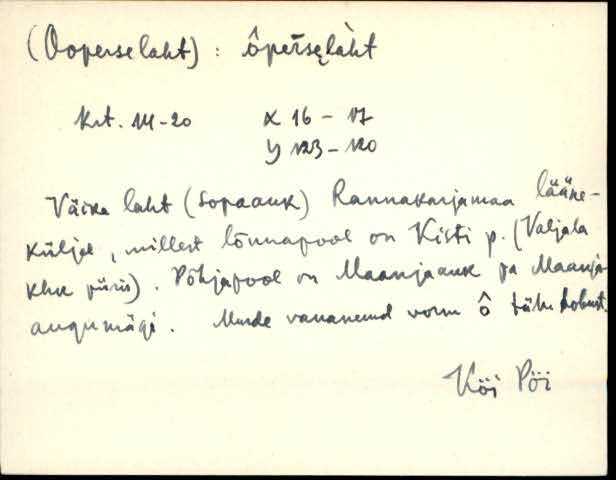 (Ooperselaht) : ôperse̮làht
Krt. M-20 X 16 - 17
y 123 - 120
Väike laht (Sopaauk) Rannakarjamaa lääne-
küljel, millest lõunapool on Kisti p. (Valjala
khk piiris). Põhjapool on Maanjaauk ja Maanja-
augumägi. vananenud vorm ô kohast.
Köi Pöi